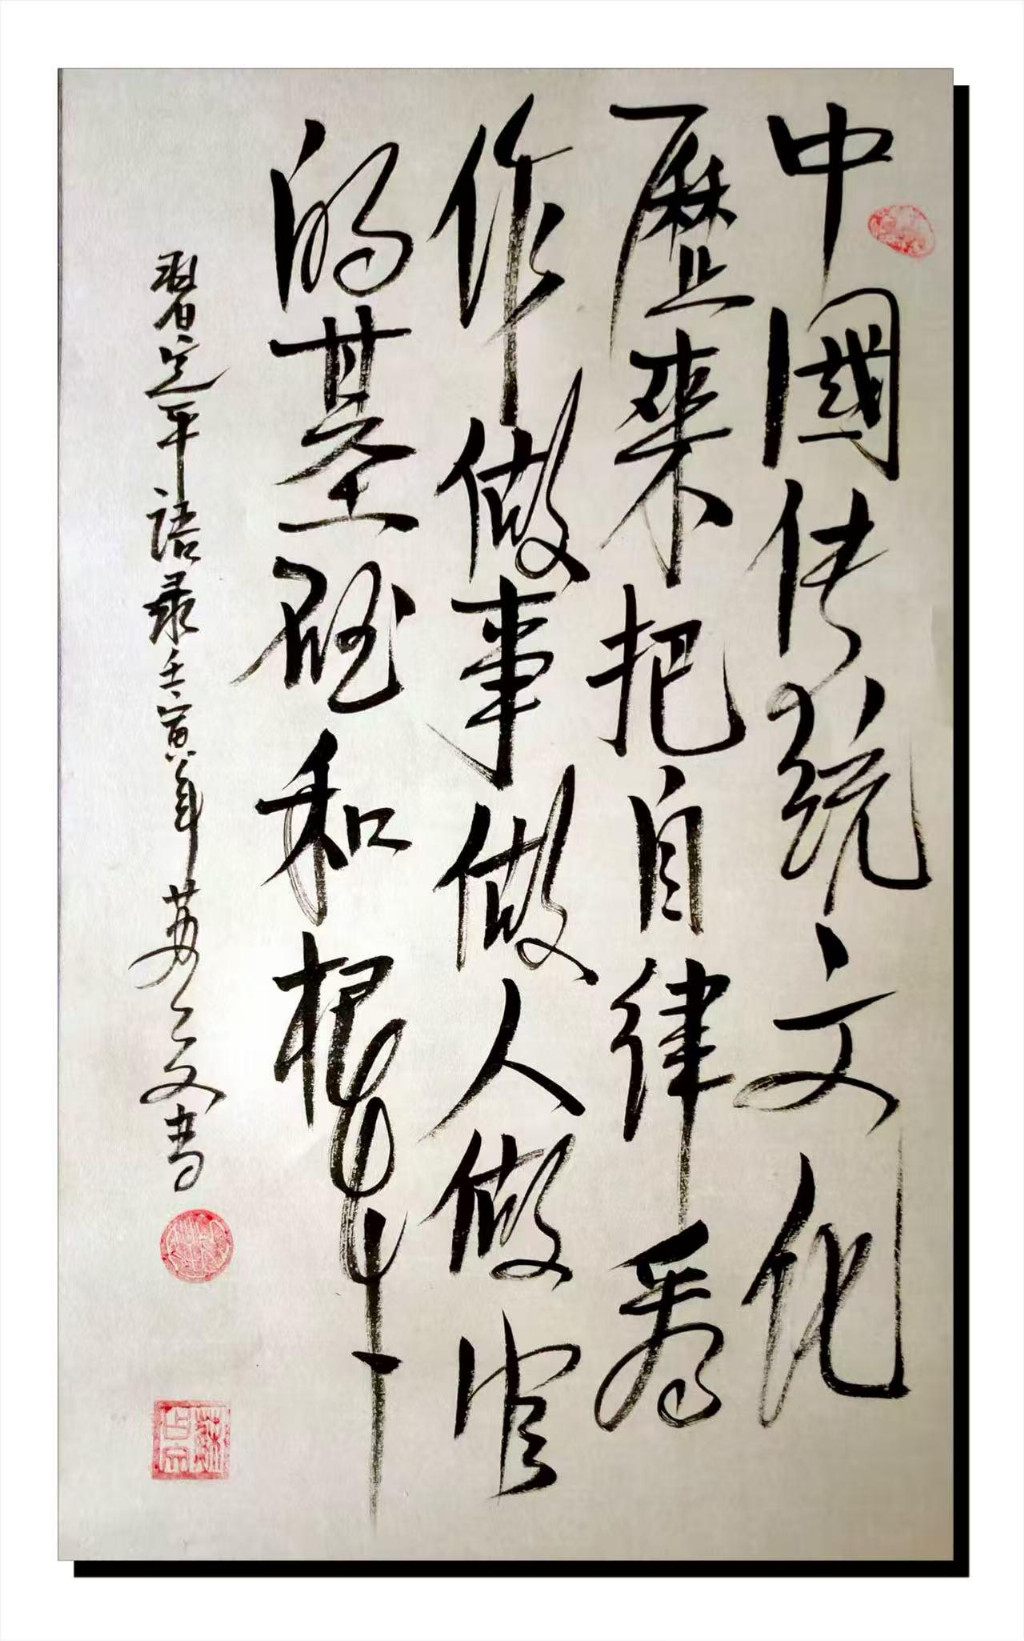 中國传統文化
歷來把自律看
作做事做人做官
的基础和根本
習近平語录壬寅年苏文書